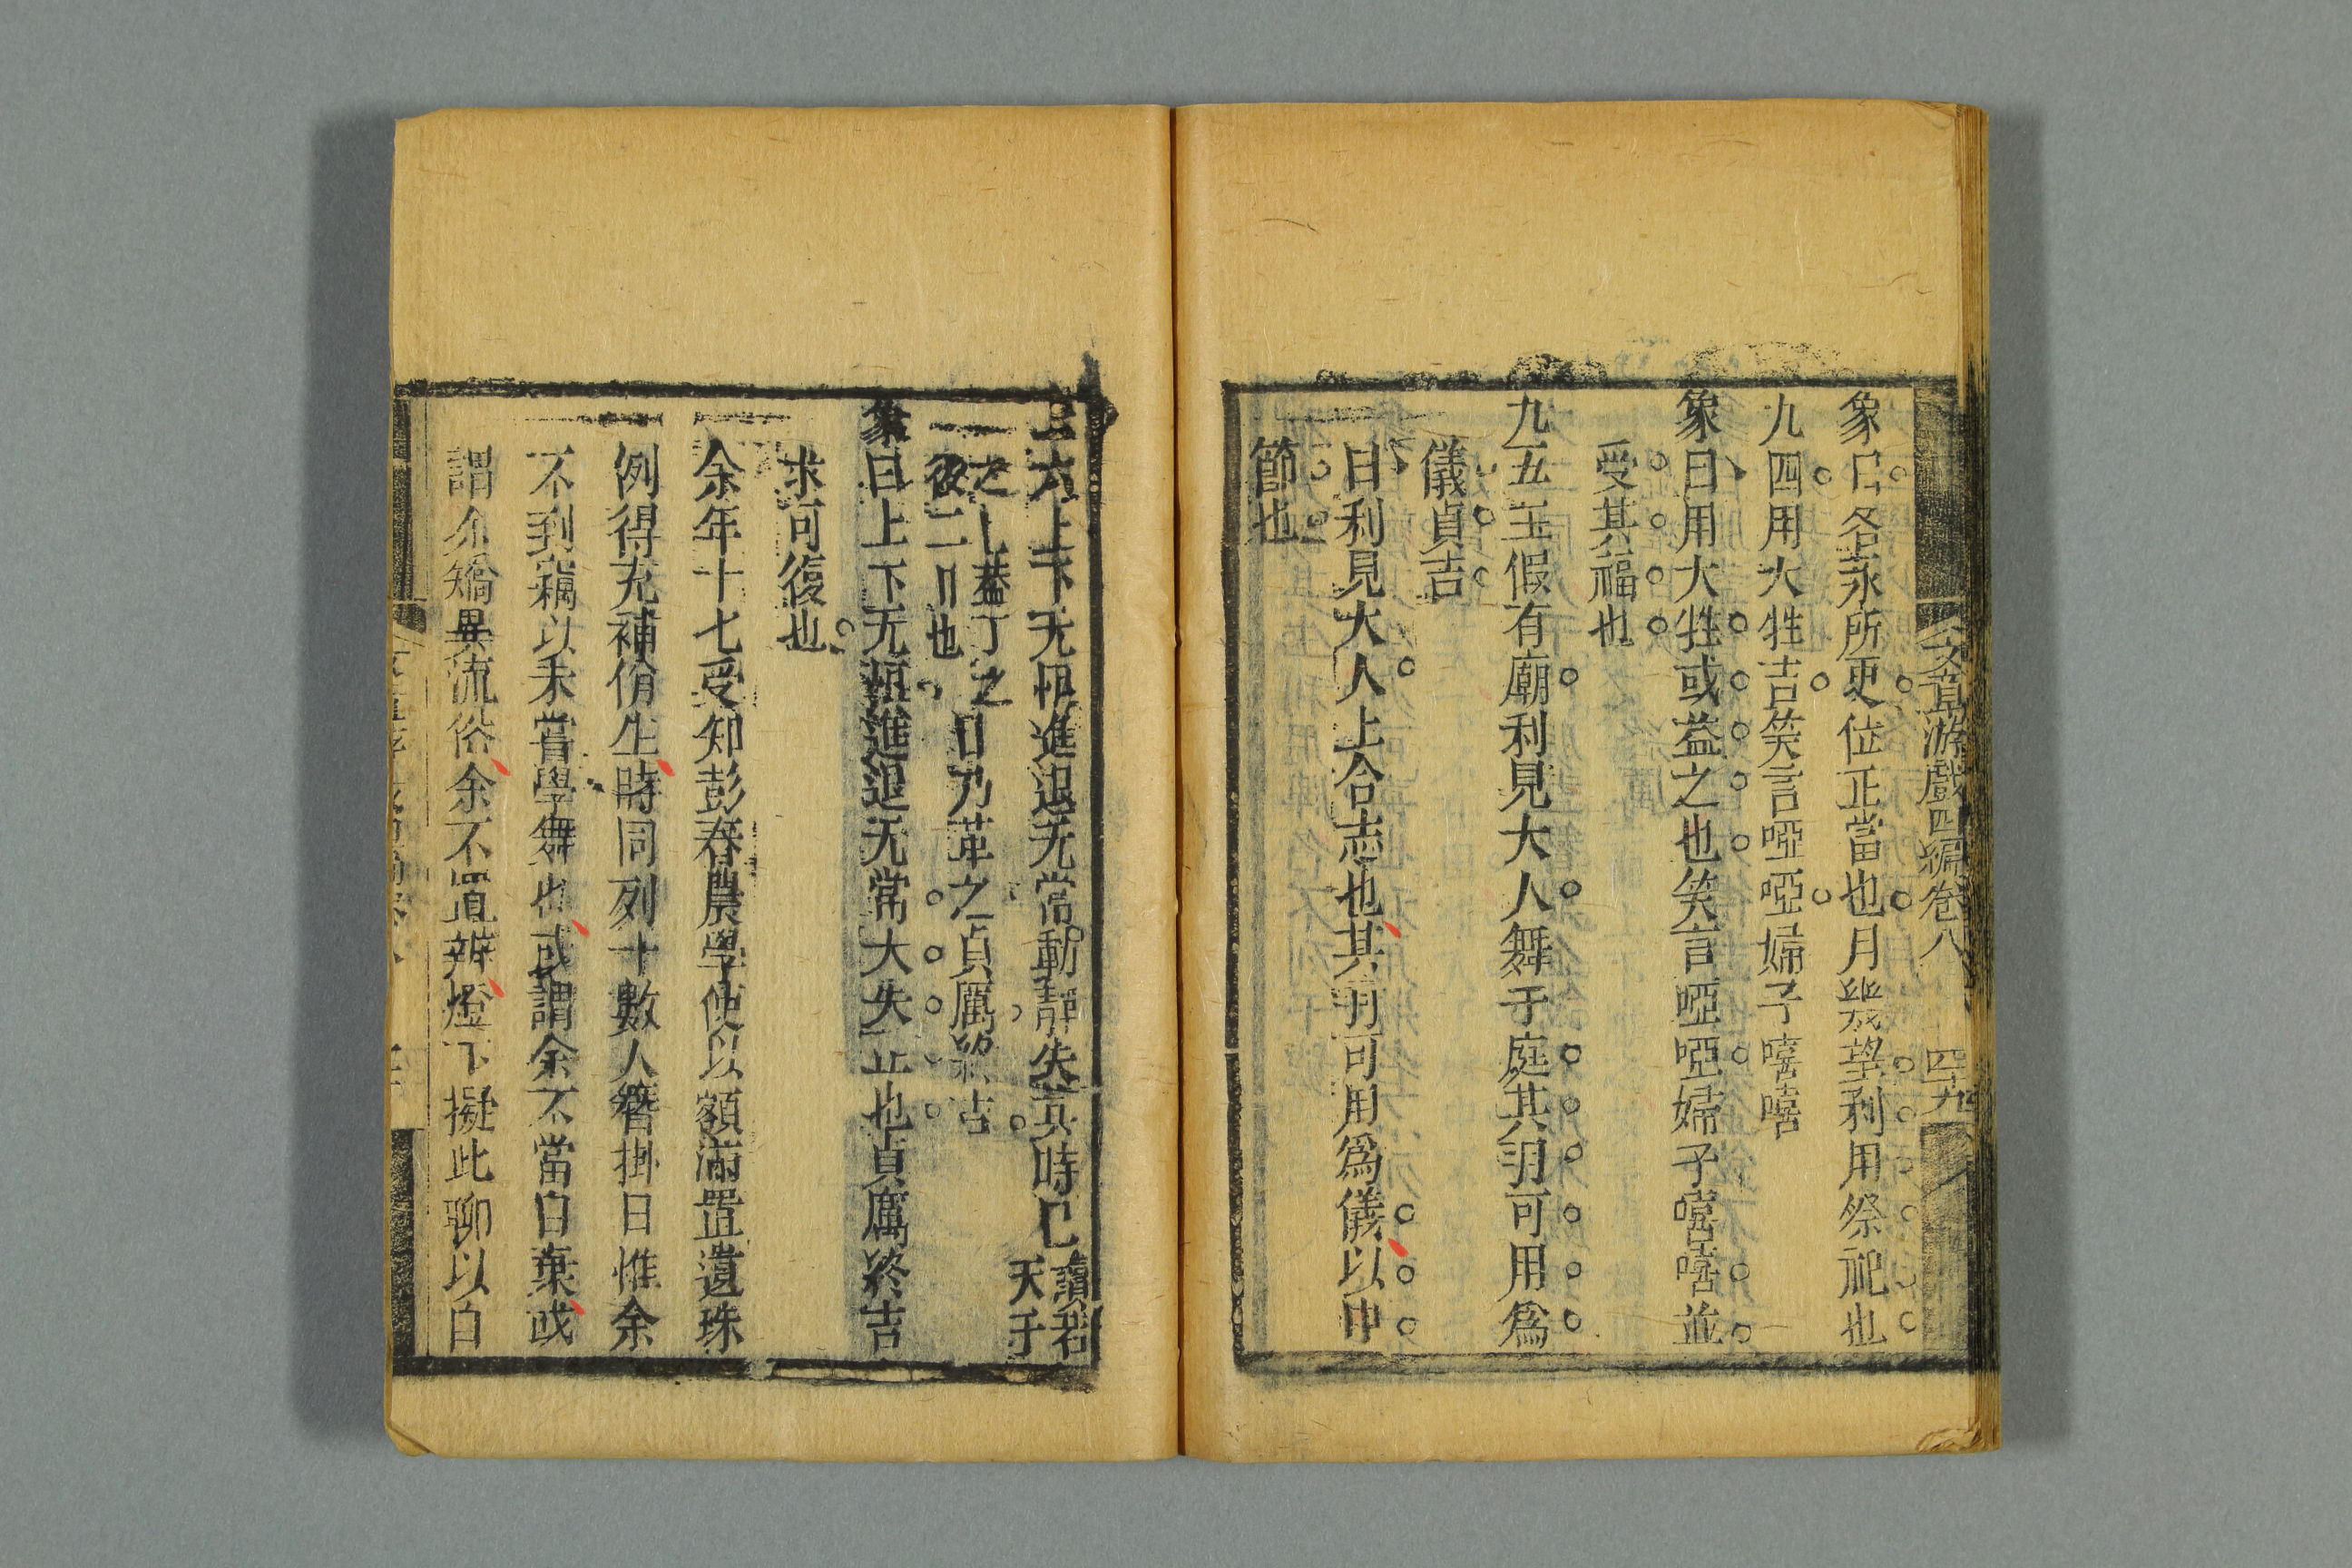 文章游戲四編卷八 四十九
象曰各永所更位正當也月幾望利用祭祀也
九四用大牲吉笑言啞啞婦子嘻嘻
象曰用大牲或益之也笑言啞啞婦子嘻嘻並
受其福也
九五王假有廟利見大人舞于庭其羽可用爲
儀貞吉
曰利見大人上合志也其羽可用爲儀以中
節也
上六上下无恆進退无常動靜失其時已讀若
天子
之蓋丁之日乃革之貞厲終吉
後二 也
象曰上下无恆進退无常大失正也貞厲終吉
求可復也
余年十七受知彭春農學使以額滿置遺珠
例得充補佾生時同列十數人簪掛日惟余
不到竊以未嘗學舞也或謂余不當自棄或
謂余矯異流俗余不置辨燈下擬此聊以白